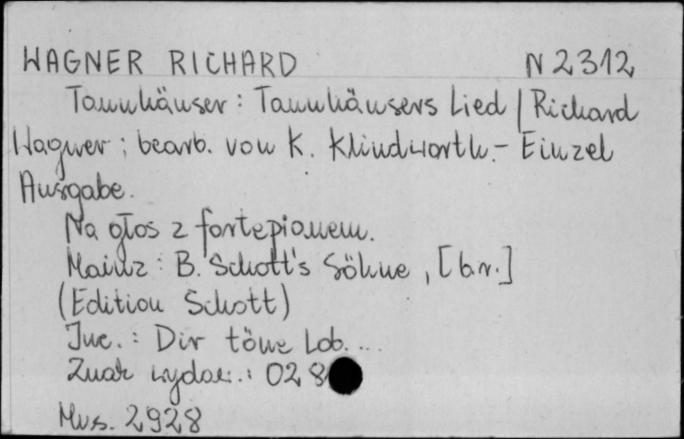 WAGNER RICHARD N 2312
Tannhäuser : Tannhäusers Lied / Richard
Wagner ; bearb. von K. Klindworth.- Einzel
Ausgabe.
Na głos z fortepianem.
Mainz : B. Schott's Söhne, [b.r.]
(Edition Schott)
Inc. : Dir töne Lob...
Znak wydaw. : 02 8
Mus. 2928